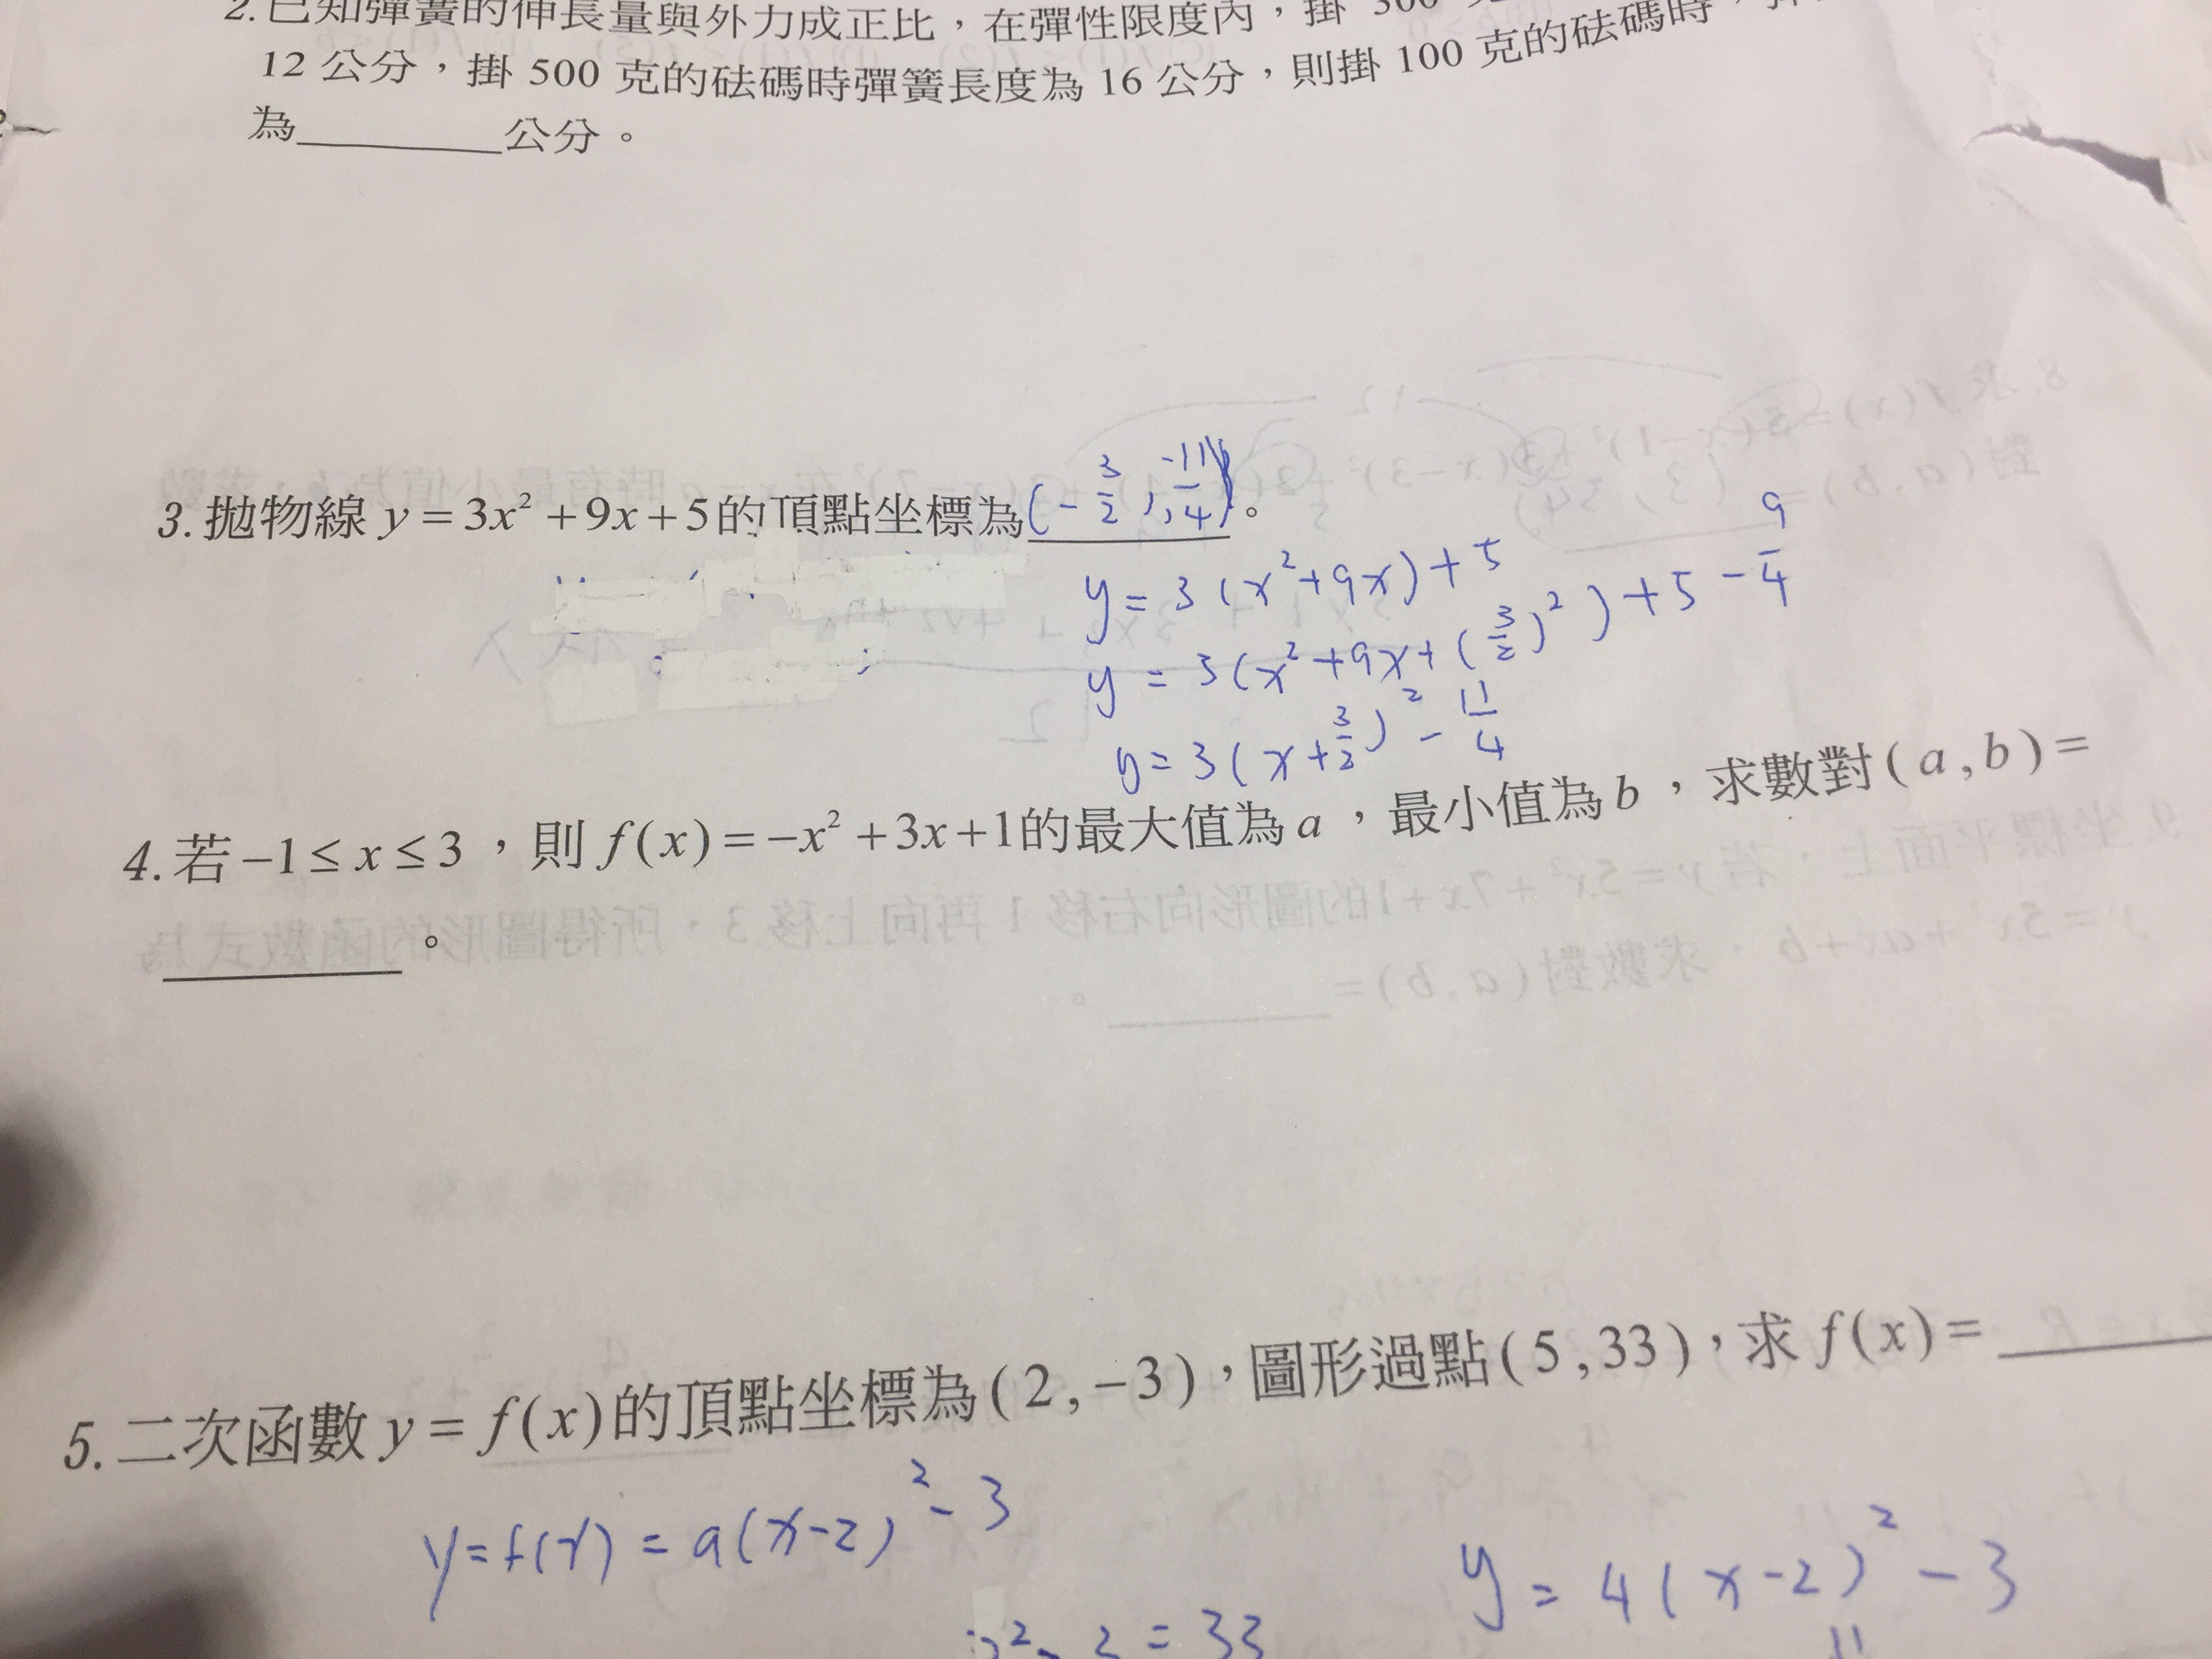 2.已知彈簧的伸長量與外力成正比，在彈性限度內，掛 300
12 公分，掛 500 克的砝碼時彈簧長度為 16 公分，則掛 100 克的砝碼時，
為________公分。
3.拋物線 y = 3x² + 9x + 5 的頂點坐標為(-3/2, -11/4)。
y = 3(x² + 9x) + 5
y = 3(x² + 9x + (3/2)²) + 5 - 9/4
y = 3(x + 3/2)² - 11/4
4.若 -1 ≤ x ≤ 3，則 f(x) = -x² + 3x + 1 的最大值為 a，最小值為 b，求數對(a,b) =
________。
5.二次函數 y = f(x) 的頂點坐標為(2,-3)，圖形過點(5,33)，求 f(x) = ________
y = f(x) = a(x-2)² - 3
y = 4(x-2)² - 3
² - 3 = 33